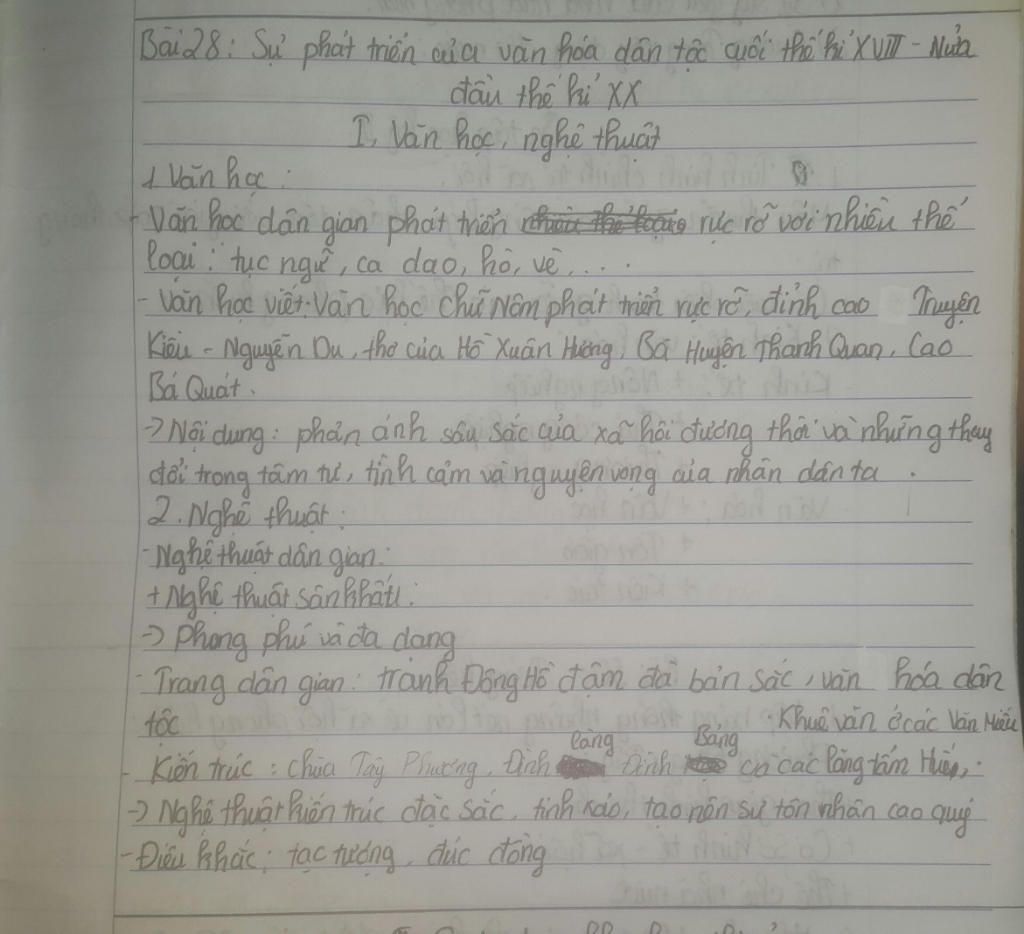 Bài 28: Sự phát triển của văn hóa dân tộc cuối thế kỉ XVIII - Nửa
đầu thế kỉ XX
I, Văn học, nghệ thuật
1 Văn học:
- Văn học dân gian phát triển rực rỡ với nhiều thể
loại: tục ngữ, ca dao, hò, vè,....
- Văn học viết: Văn học chữ Nôm phát triển rực rỡ, đỉnh cao Truyện
Kiều - Nguyễn Du, thơ của Hồ Xuân Hương, Bà Huyện Thanh Quan, Cao
Bá Quát.
-> Nội dung: phản ánh sâu sắc của xã hội đương thời và những thay
đổi trong tâm tư, tình cảm và nguyện vọng của nhân dân ta.
2. Nghệ thuật:
- Nghệ thuật dân gian:
+ Nghệ thuật sân khấu.
-> Phong phú và đa dạng
- Trang dân gian: tranh Đông Hồ đậm đà bản sắc, văn hóa dân
tộc
Khuê văn ở các Văn Miếu
làng Bảng
- Kiến trúc: chùa Tây Phương, Đình Đình các lăng tẩm Huế,.
-> Nghệ thuật kiến trúc đặc sắc, tinh xảo, tạo nên sự tôn cao quý
- Điêu khắc: tạc tượng, đúc đồng